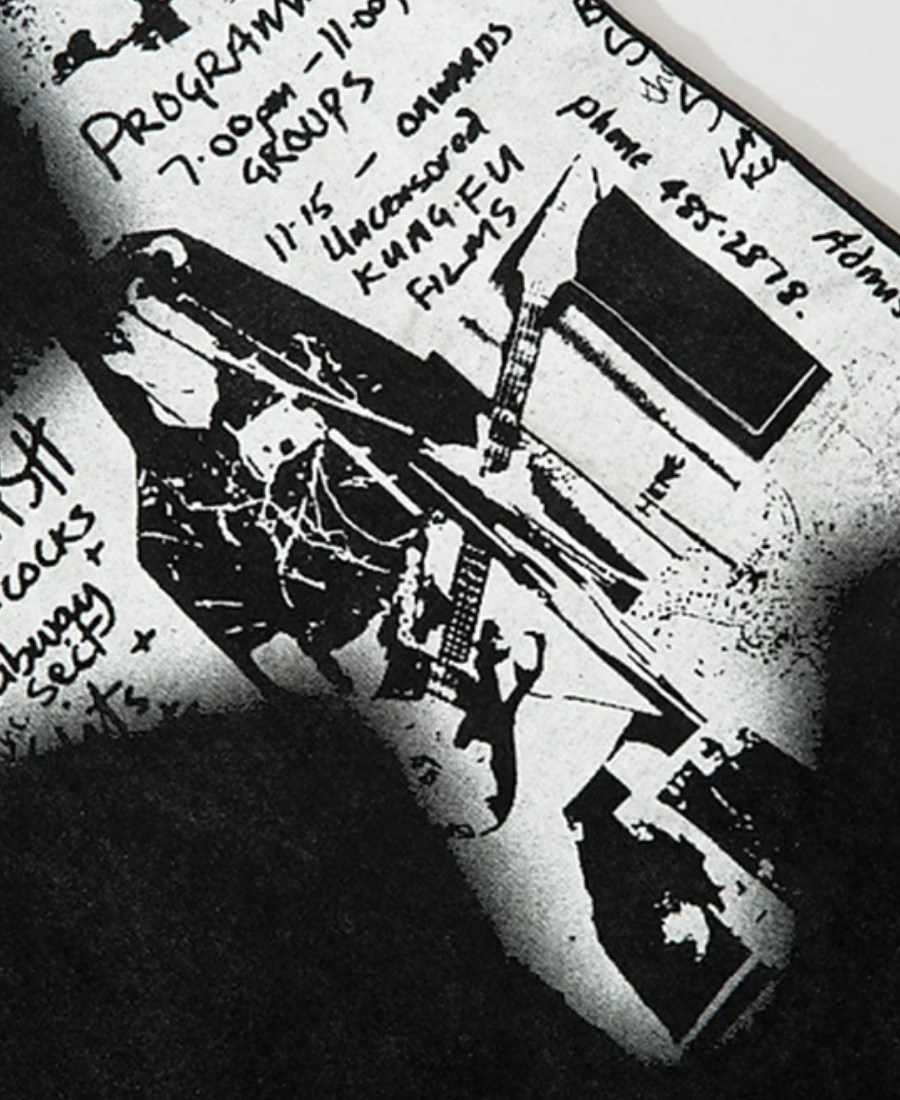 PROGRAMM
7.00pm - 11.00p
GROUPS
11.15 - ONWARDS
Uncensored
KUNG.FU
FILMS
the
phone 485.2878.
Adms
HERE
COCKS
+
bway
sect +